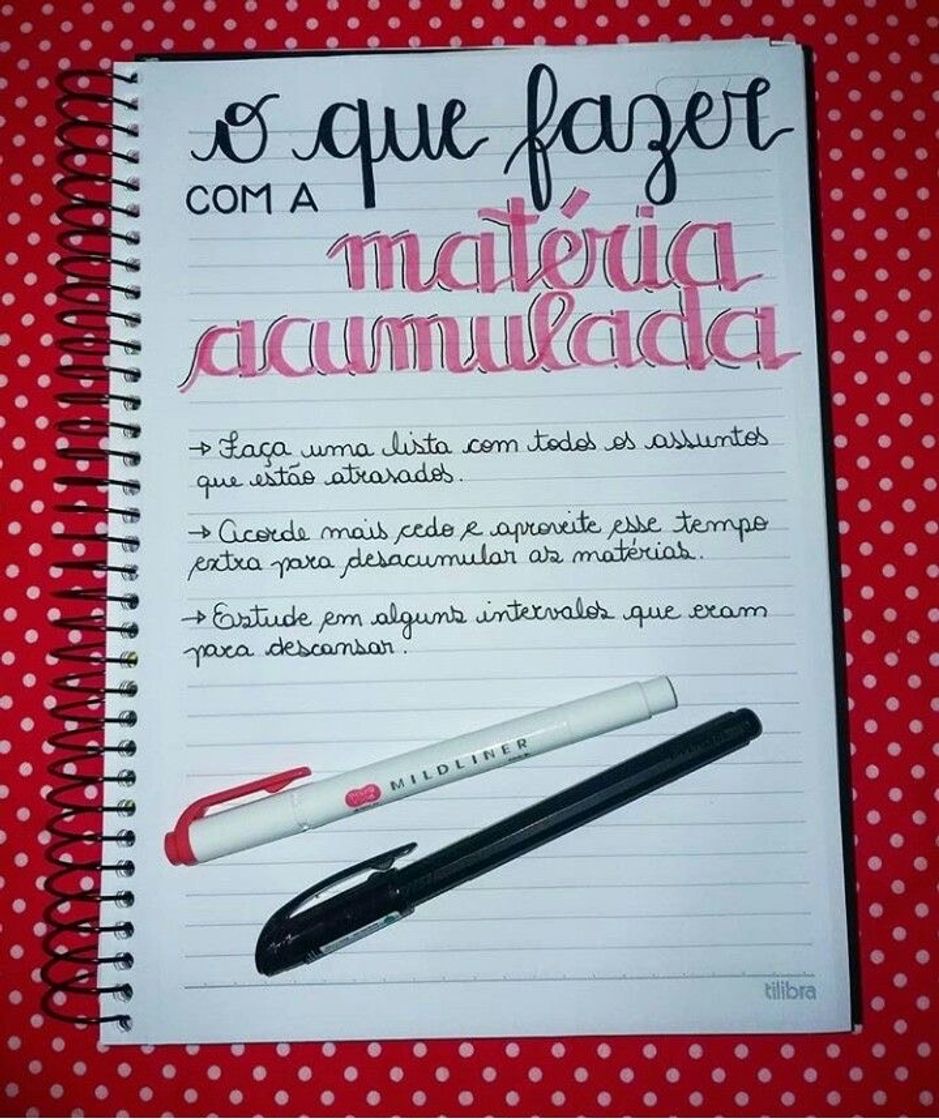 o que fazer
COM A
matéria
acumulada
→ Faça uma lista com todos os assuntos
que estão atrasados.
→ Acorde mais cedo e aproveite esse tempo
extra para desacumular as matérias.
→ Estude em alguns intervalos que eram
para descansar.
MILDLINER
tilibra